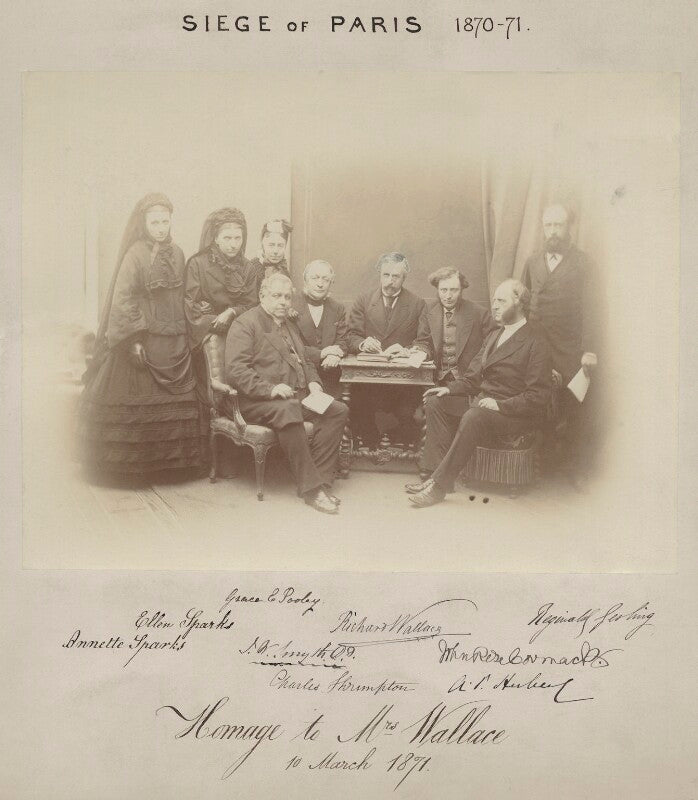 SIEGE OF PARIS 1870-71.
Grace E Pooley.
Ellen Sparks
Richard Wallace
Reginald Gesling
Annette Sparks
J. W. Smyth
John Rose Cormack
Charles Shrumpton
A. S. Herbert
Homage to Mrs Wallace
10 March 1871.